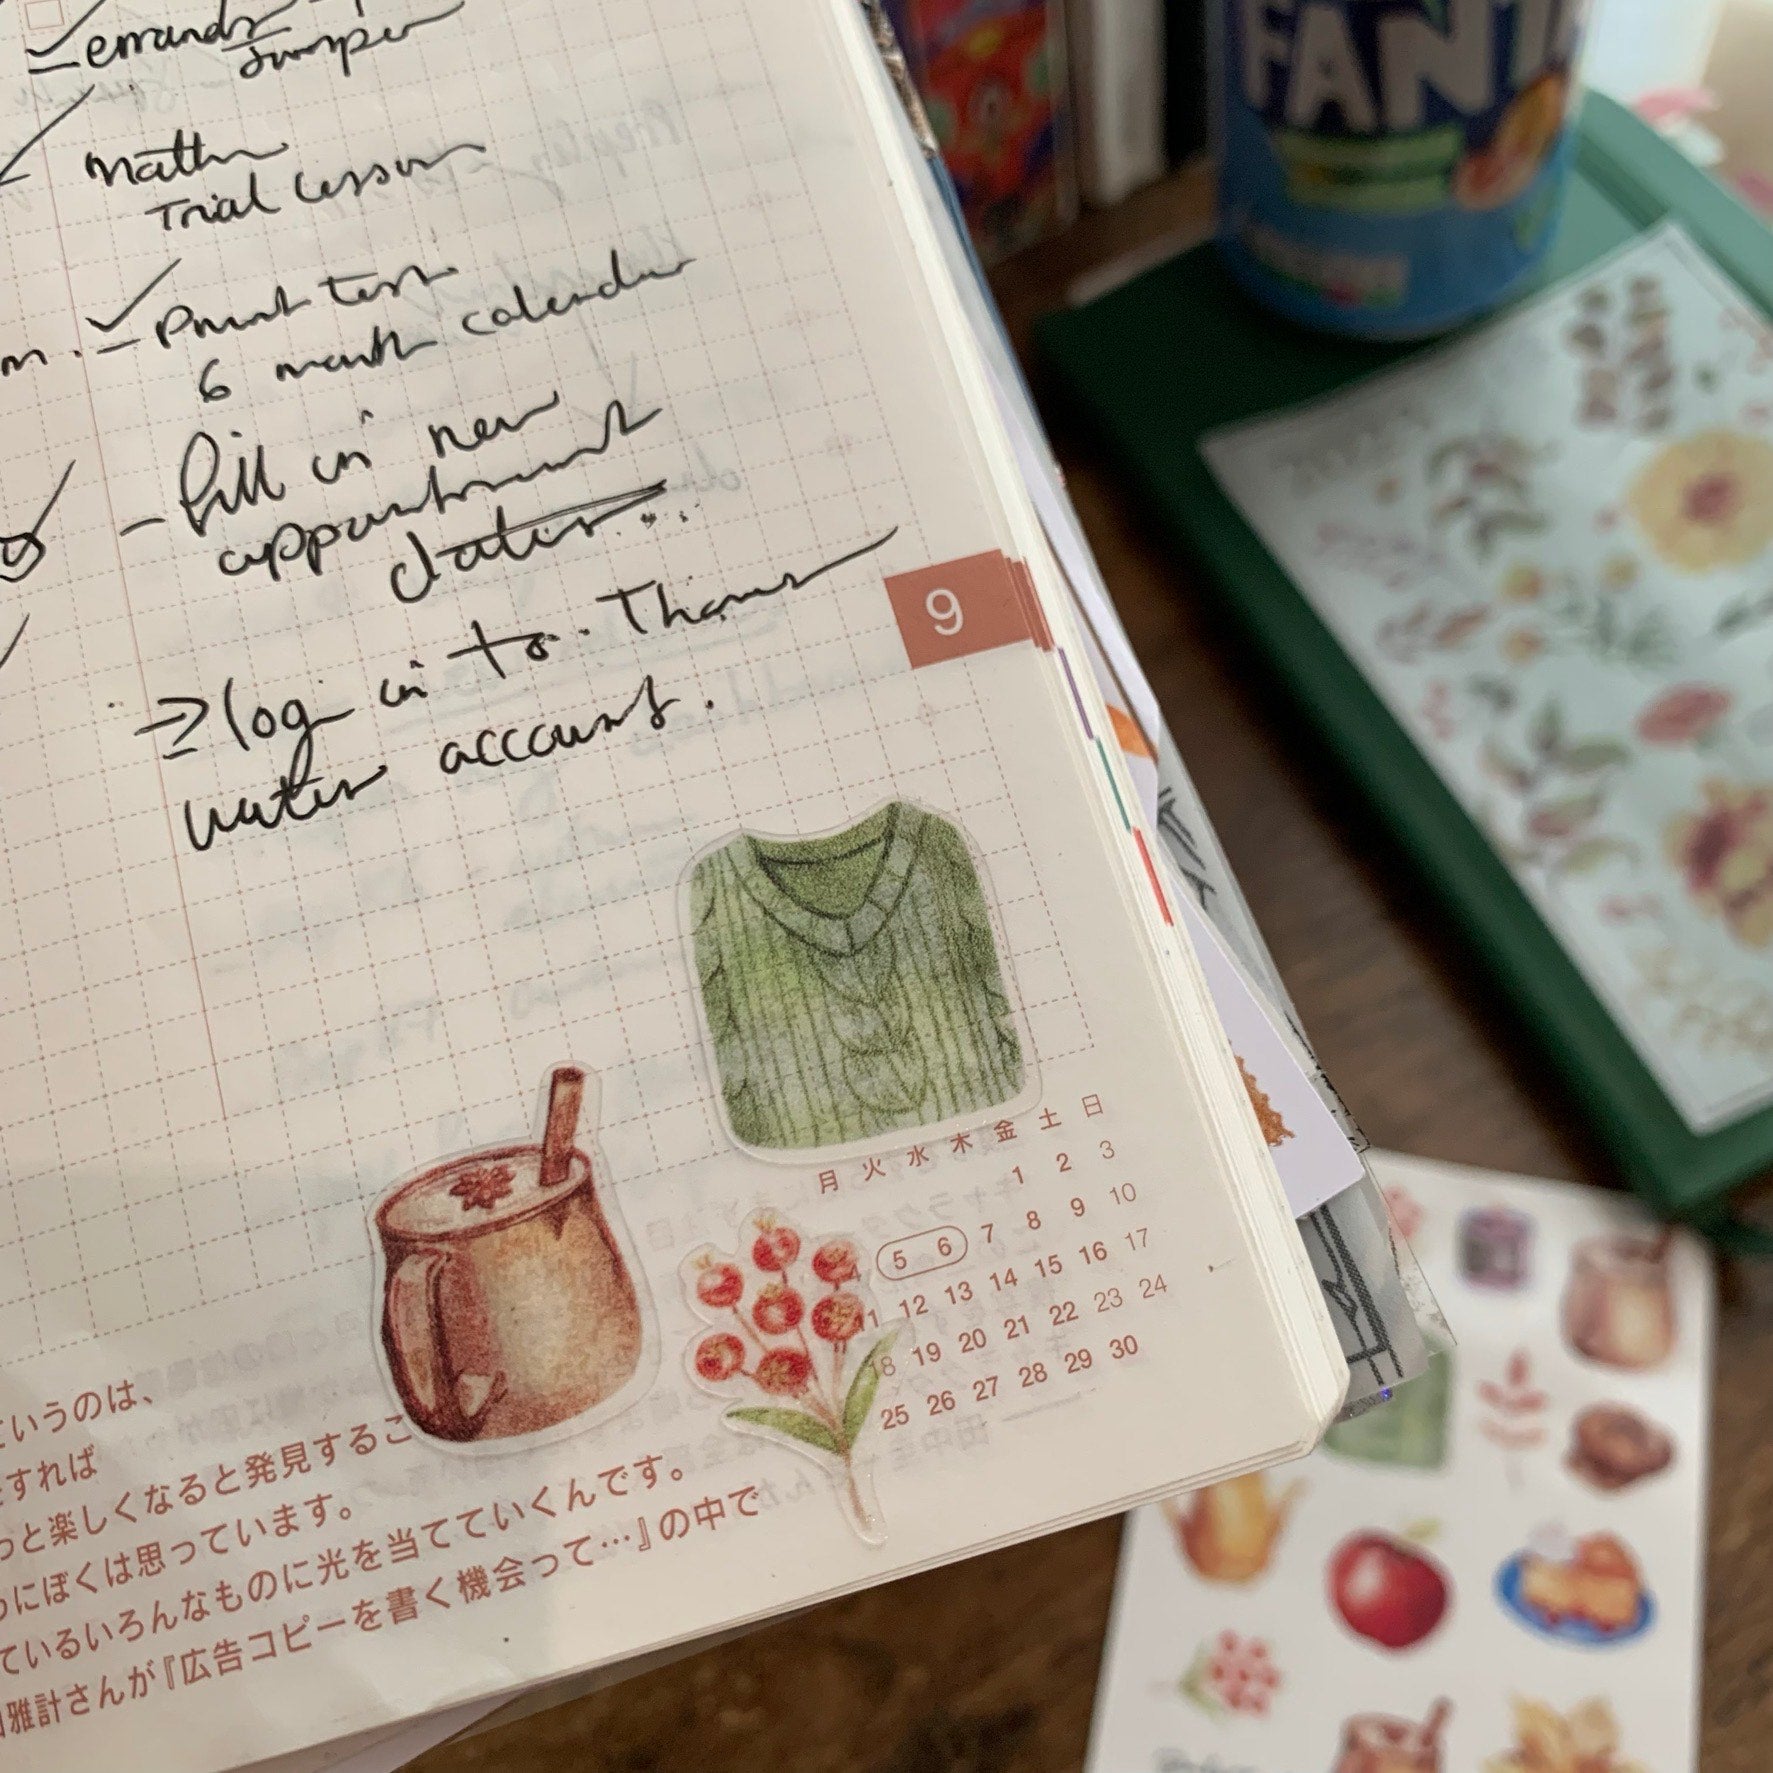 errands
Jumper
math
Trial lesson
m. - Print test
6 month calendar
- fill in new
appointment
dates..
log in to. Thames
water account.
9
月 火 水 木 金 土 日
1 2 3
4 5 6 7 8 9 10
11 12 13 14 15 16 17
18 19 20 21 22 23 24
25 26 27 28 29 30
いうのは、
すれば
っと楽しくなると発見するこ
にぼくは思っています。
ているいろんなものに光を当てていくんです。
雅計さんが『広告コピーを書く機会って…』の中で
FANT